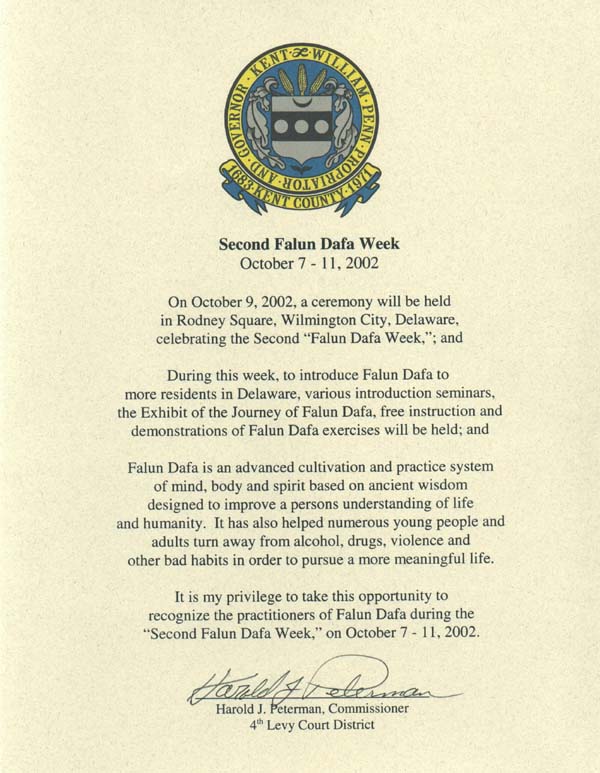 WILLIAM · PENN · PROPRIATOR · AND · GOVERNOR · KENT
1683 · KENT COUNTY · 1971
Second Falun Dafa Week
October 7 - 11, 2002
On October 9, 2002, a ceremony will be held
in Rodney Square, Wilmington City, Delaware,
celebrating the Second “Falun Dafa Week,”; and
During this week, to introduce Falun Dafa to
more residents in Delaware, various introduction seminars,
the Exhibit of the Journey of Falun Dafa, free instruction and
demonstrations of Falun Dafa exercises will be held; and
Falun Dafa is an advanced cultivation and practice system
of mind, body and spirit based on ancient wisdom
designed to improve a persons understanding of life
and humanity. It has also helped numerous young people and
adults turn away from alcohol, drugs, violence and
other bad habits in order to pursue a more meaningful life.
It is my privilege to take this opportunity to
recognize the practitioners of Falun Dafa during the
“Second Falun Dafa Week,” on October 7 - 11, 2002.
Harold J Peterman
Harold J. Peterman, Commissioner
4th Levy Court District